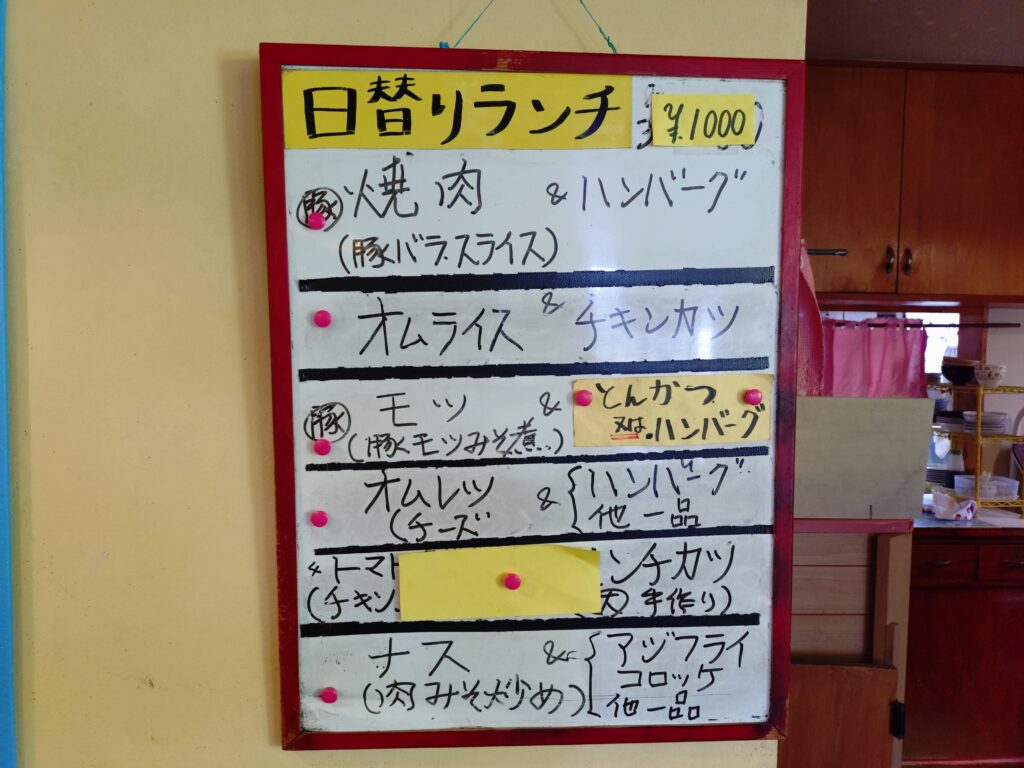 日替りランチ ¥1000
豚 焼肉 & ハンバーグ
(豚バラスライス)
オムライス & チキンカツ
豚 モツ & とんかつ
(豚モツみそ煮) 又は.ハンバーグ
オムレツ & ハンバーグ
(チーズ 他一品
トマト ンチカツ
(チキン 手作り)
ナス & アジフライ
コロッケ
(肉みそ炒め) 他一品